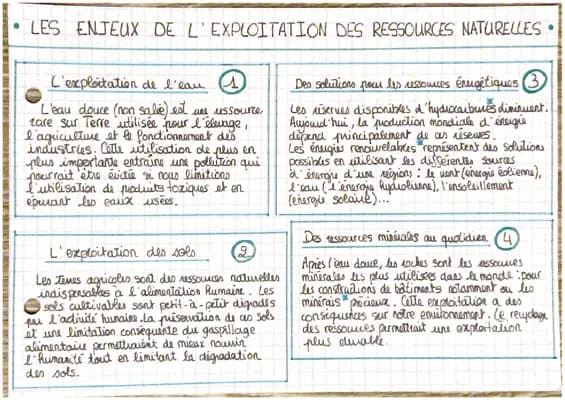 • LES ENJEUX DE L'EXPLOITATION DES RESSOURCES NATURELLES •
L'exploitation de l'eau 1
L'eau douce (non salée) est une ressource
rare sur Terre utilisée pour l'élevage,
l'agriculture et le fonctionnement des
industries. Cette utilisation de plus en
plus importante entraine une pollution qui
pourrait être évitée si nous limitions
l'utilisation de produits toxiques et en
épurant les eaux usées.
L'exploitation des sols 2
Les terres agricoles sont des ressources naturelles
indispensables à l'alimentation humaine. Les
sols cultivables sont petit-à-petit dégradés
par l'activité humaine. La préservation de ces sols
et une limitation conséquente du gaspillage
alimentaire permettraient de mieux nourrir
l'Humanité tout en limitant la dégradation
des sols.
Des solutions pour les ressources énergétiques 3
Les réserves disponibles d'hydrocarbures* diminuent.
Aujourd'hui, la production mondiale d'énergie
dépend principalement de ces réserves.
Les énergies renouvelables* représentent des solutions
possibles en utilisant les différentes sources
d'énergie d'une régions : le vent (énergie éolienne),
l'eau (l'énergie hydrolienne), l'ensoleillement
(énergie solaire)...
Des ressources minérales au quotidien 4
Après l'eau douce, les roches sont les ressources
minérales les plus utilisées dans le monde : pour
les constructions de bâtiments notamment ou les
minerais* précieux. Cette exploitation a des
conséquences sur notre environnement. Le recyclage
des ressources permettrait une exploitation
plus durable.